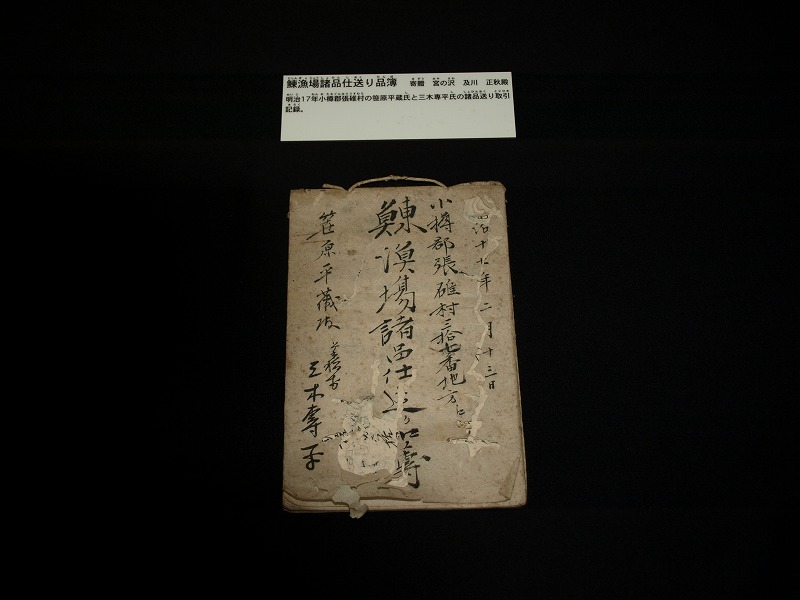 鰊漁場諸品仕送り品簿　寄贈　宮の沢　及川　正秋殿
明治17年小樽郡張碓村の笹原平蔵氏と三木専平氏の諸品送り取引
記録。
治十七年二月十三日
小樽郡張碓村三拾七番地方ニ
鰊漁場諸品仕送り
笹原平蔵
三木専平